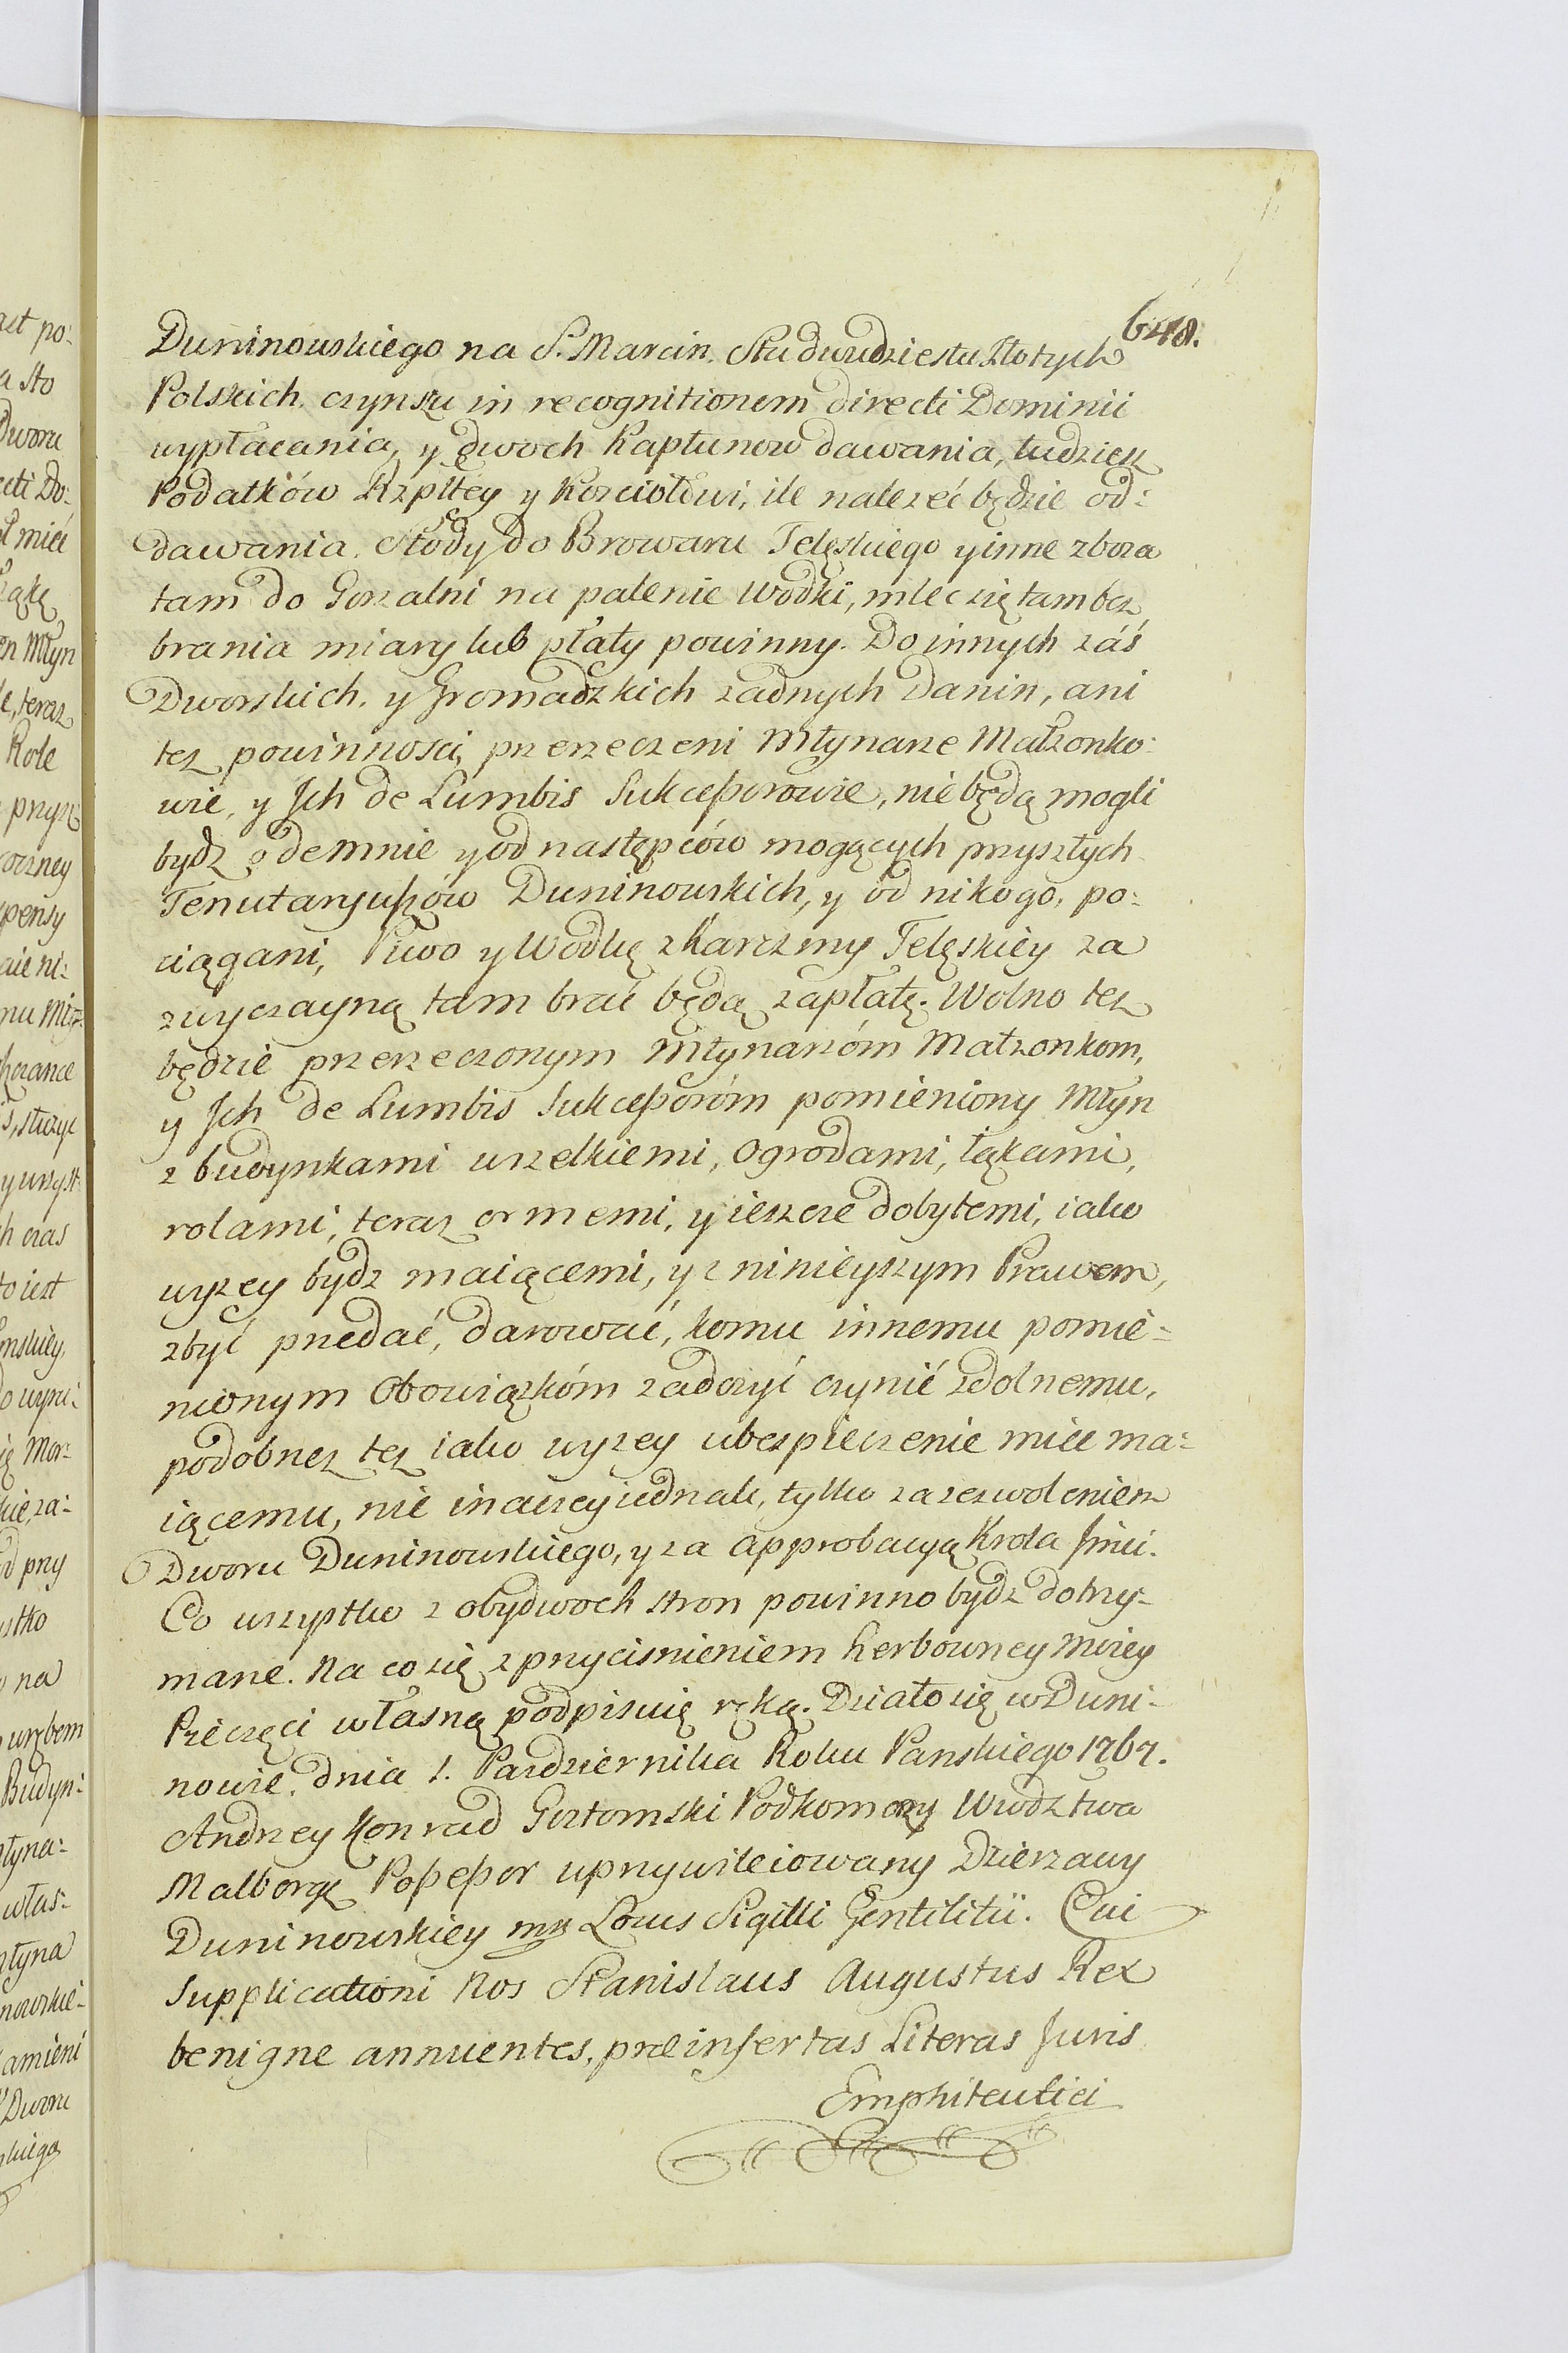 648.
Duninowskiego na S. Marcin. Stu dwudziestu Złotych
Polskich. czynszu in recognitionem directi Dominii
wypłacania, y dwoch Kapłunow dawania, tudziesz
Podatków Rzpltey y Kosciołowi, ile nalezeć będzie od=
dawania. Słody do Browaru Telęskiego y inne zboza
tam do Gorzalni na palenie Wodki, mlec się tam bez
brania miary lub płaty powinny. Do innych záś
Dworskich. y Gromadzkich zadnych Danin, ani
tez powinnosci, przerzeczeni Młynarze Małzonko=
wie, y Jch de Lumbis Sukcessorowie, nie będą mogli
bydz odemnie y od następców mogących przyszłych
Tenutaryuszów Duninowskich, y od nikogo, po=
ciągani, Piwo y Wodkę z Karczmy Telęskiey za
zwyczayną tam brać będą zapłatę. Wolno tez
będzie przerzeczonym Młynarzóm Małzonkom,
y Jch de Lumbis Sukcessoróm pomieniony Młyn
z budynkami wszelkiemi, Ogrodami, łąkami,
rolami, teraz ornemi, y ieszcze dobytemi, iako
wyzey bydz maiącemi, y z ninieyszym Prawem,
zbyć przedać, darować, komu innemu pomie=
nionym Obowiązkóm zadosyć czynić zdolnemu,
podobnez tez iako wyzey ubezpieczenie miec ma=
iącemu, nie inaczey iednak, tylko za zezwoleniem
Dworu Duninowskiego, y za approbacyą Krola Jmci.
Co wszystko z obydwoch stron powinno bydz dotrzy=
mane. Na co się z przycisnieniem herbowney moiey
Pieczęci własną podpisuię ręką. Działo się w Duni=
nowie. dnia 1. Pazdziernika Roku Panskiego 1767.
Andrzey Konrad Goztomski Podkomorzy Wwdztwa
Malborgę Possessor uprzywileiowany Dzierzawy
Duninowskiey mp Locus Sigilli Gentilitii. Cui
Supplicationi Nos Stanislaus Augustus Rex
benigne annuentes, præinsertas Literas Juris
Emphiteutici